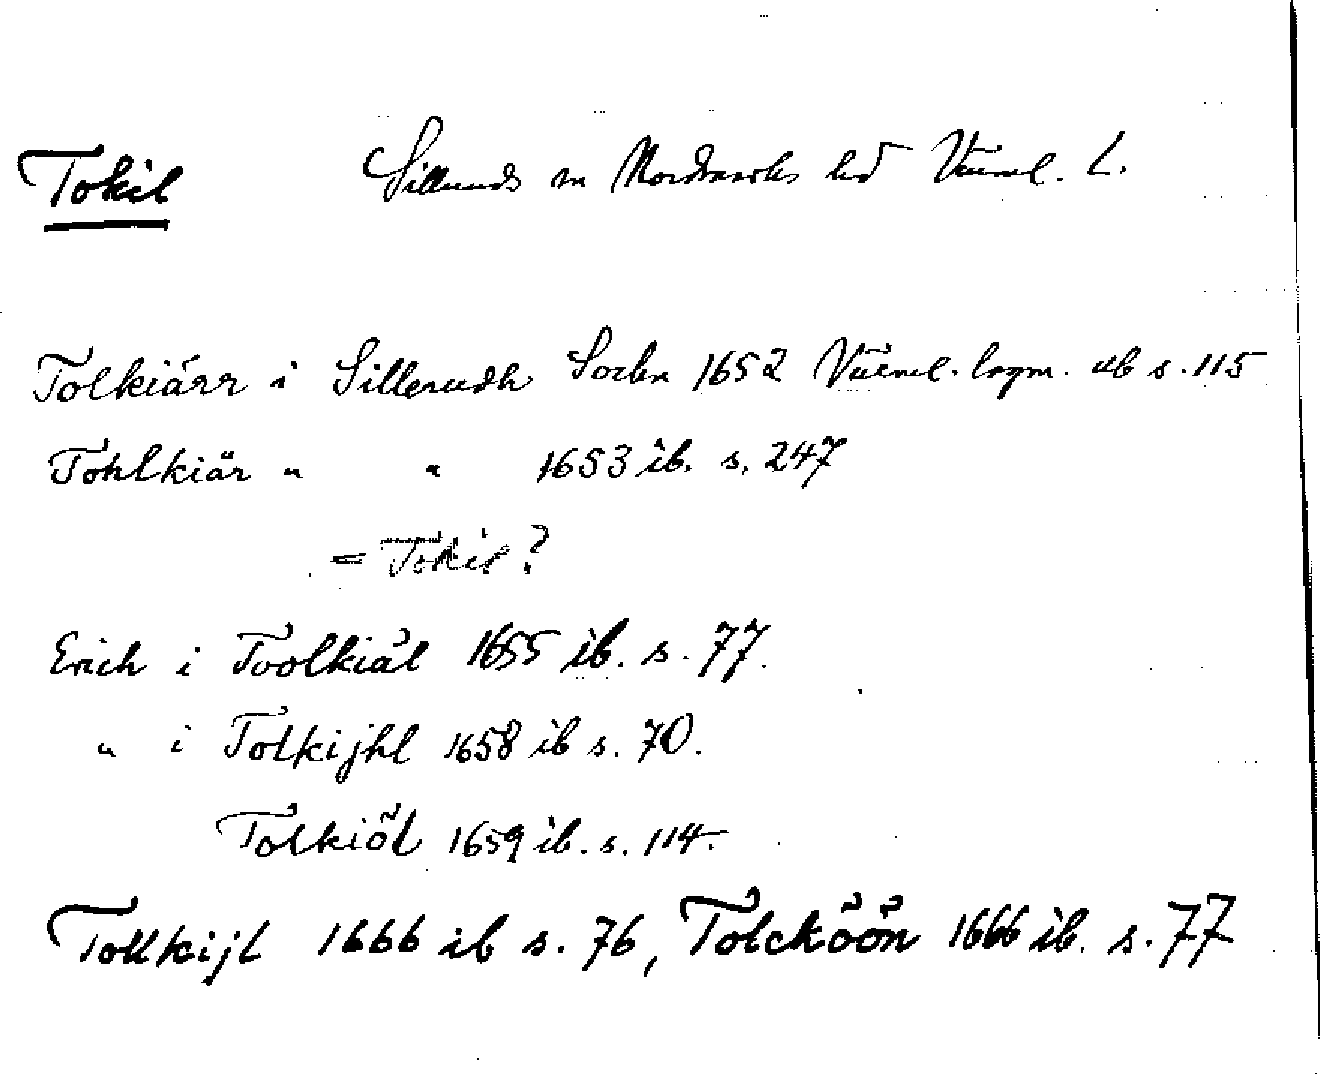 Tokil Silleruds sn Nordmarks hd Värml. L.
Tolkiärr i Sillerudh Sochn 1652 Värml. lagm. db s. 115
Tohlkiär " " 1653 ib. s. 247
= Tokil?
Erich i Toolkiäl 1655 ib. s. 77.
" i Tolkijhl 1658 ib s. 70.
Tolkiöl 1659 ib. s. 114.
Tollkijl 1666 ib s. 76, Tolcköön 1666 ib. s. 77